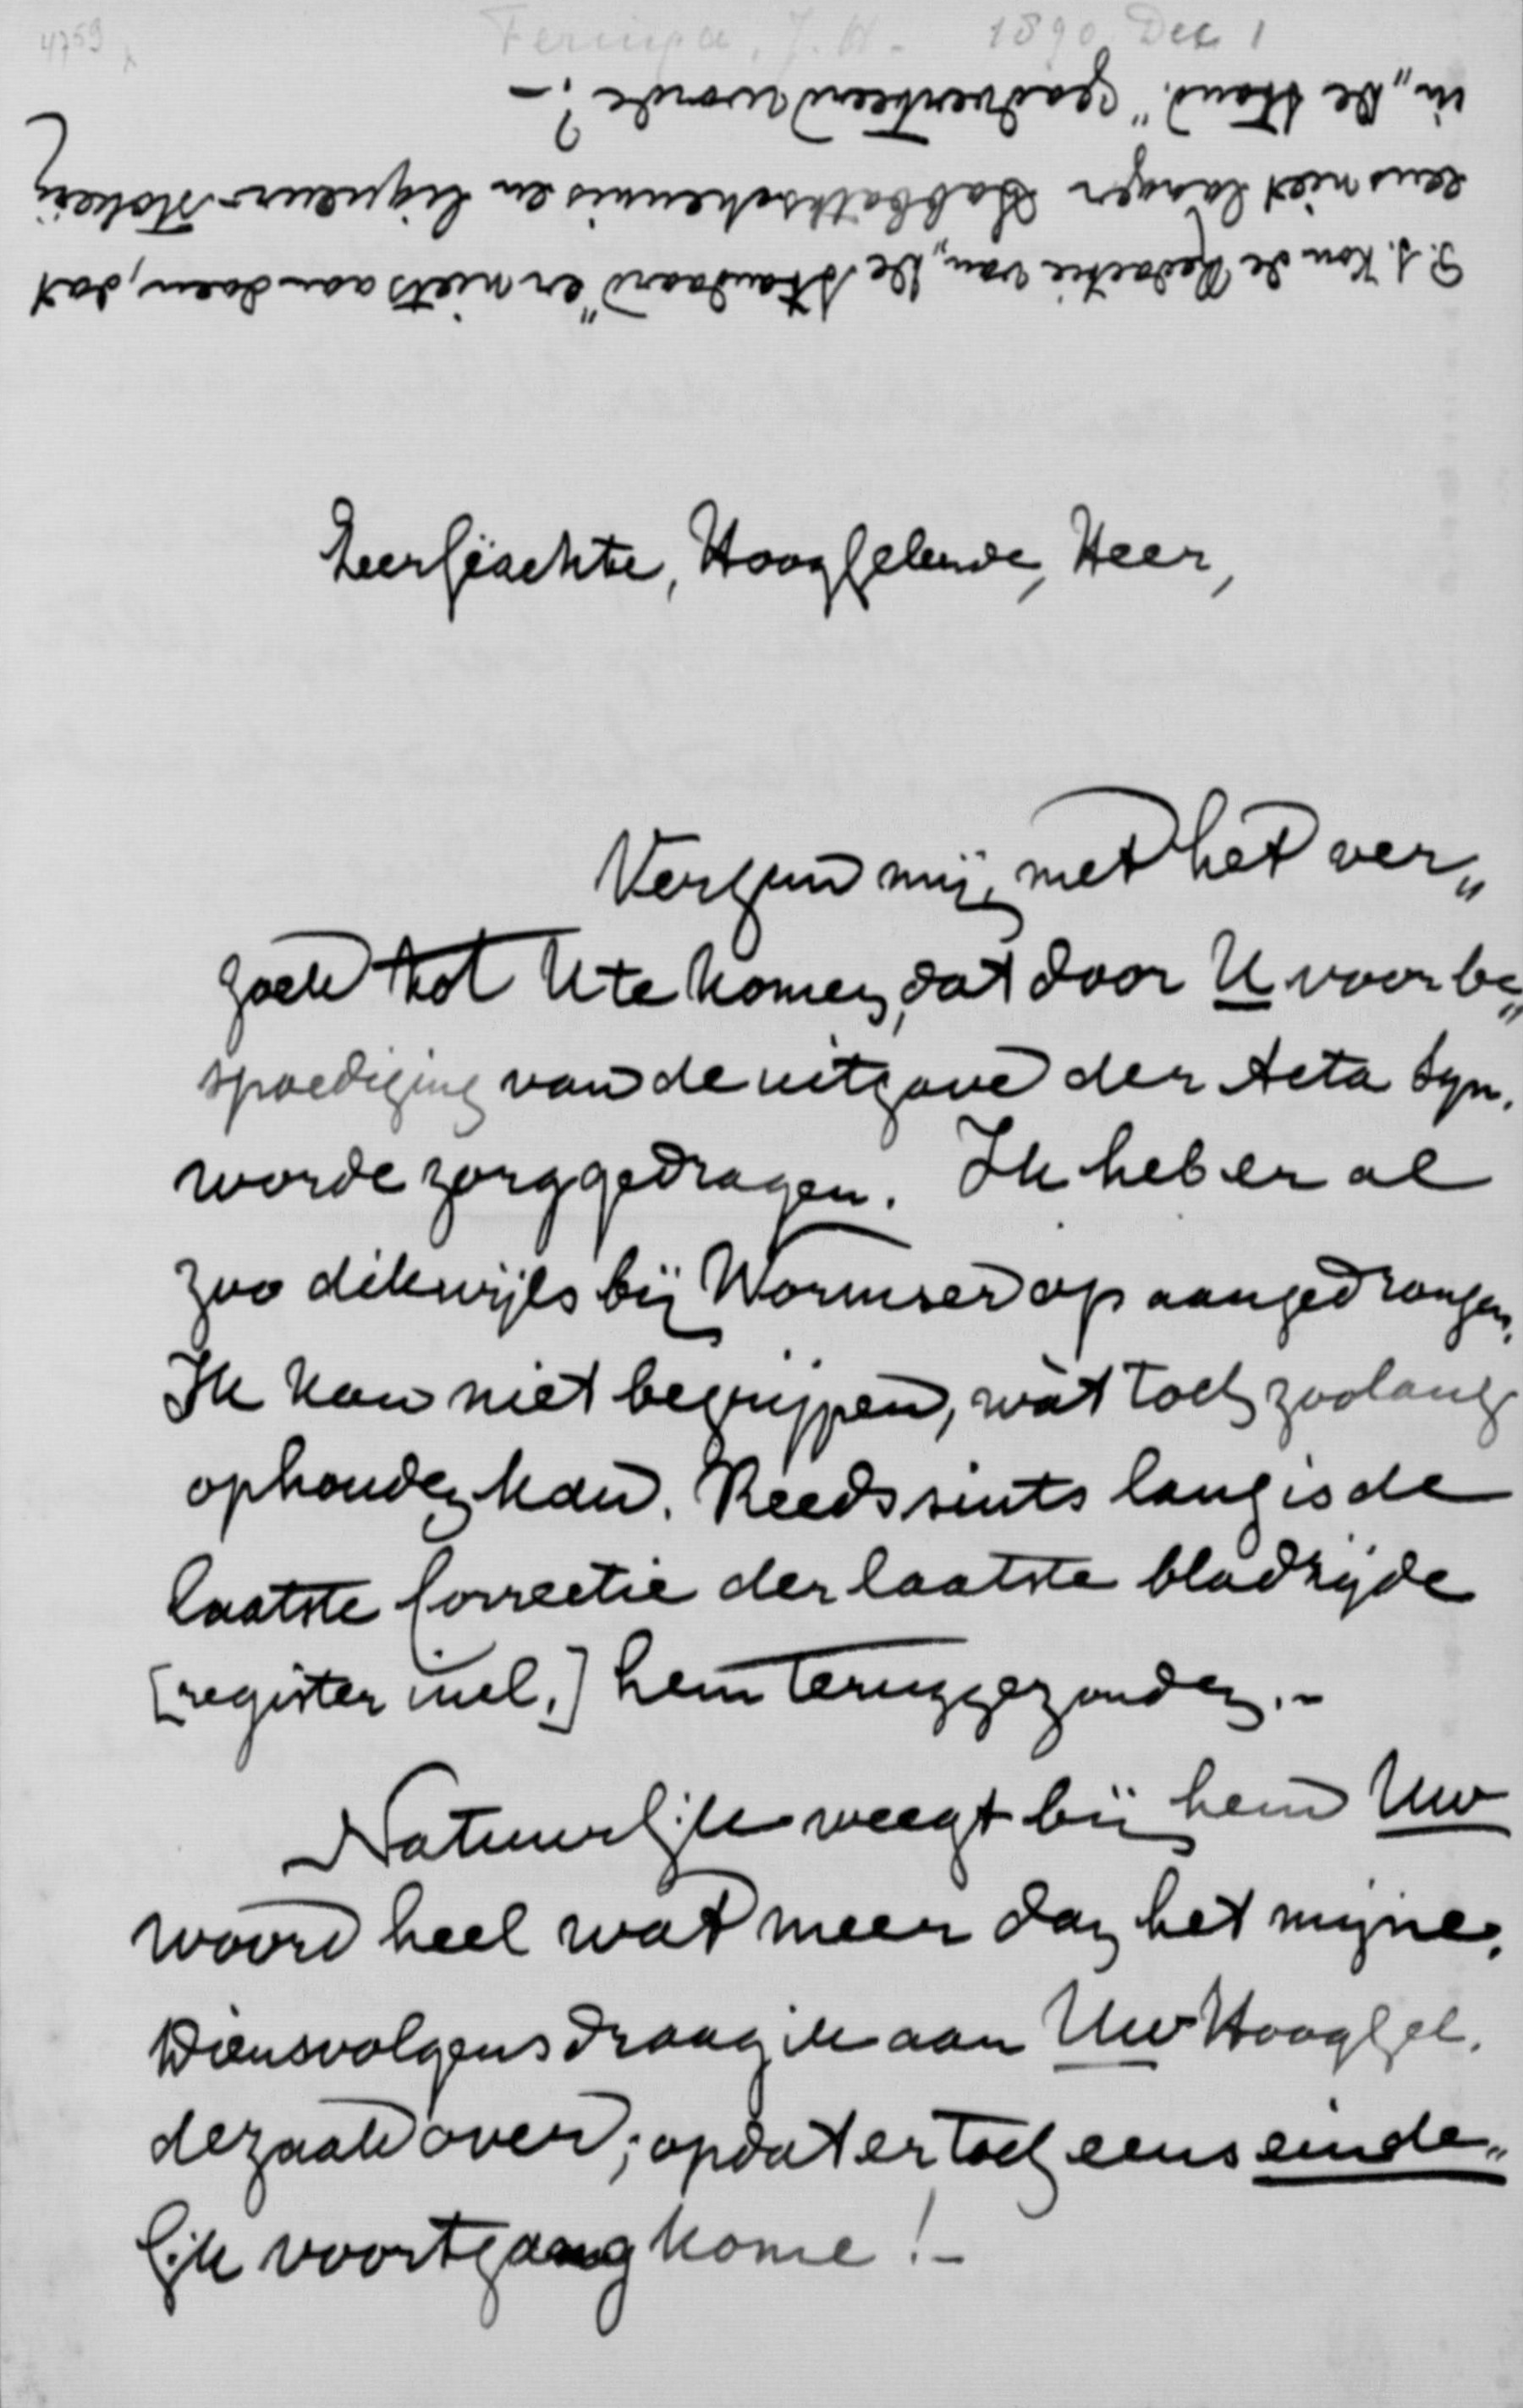 4759
Feringa, J. H. 1890 Dec 1
Zeer Geachte, Hooggeleerde, Heer,
Vergun mij, met het ver„
zoek tot U te komen, dat door U voor be„
spoediging van de uitgave der Acta Syn.
worde zorggedragen. Ik heb er al
zoo dikwijls bij Wormser op aangedrongen.
Ik kan niet begrijpen, wàt toch zoolang
ophouden kan. Reeds sints lang is de
laatste correctie der laatste bladzijde
[register incl.] hem teruggezonden.-
Natuurlijk weegt bij hem Uw
woord heel wat meer dan het mijne.
Diensvolgens draag ik aan Uw Hooggel.
de zaak over; opdat er toch eens einde„
lijk voortgang kome!-
P.S. Kon de Redactie van „De Standaard" er niets aan doen, dat
eens niet langer Sabbathschennis en liqueur-stokerij
in „De Stand." geadverteerd worde?-